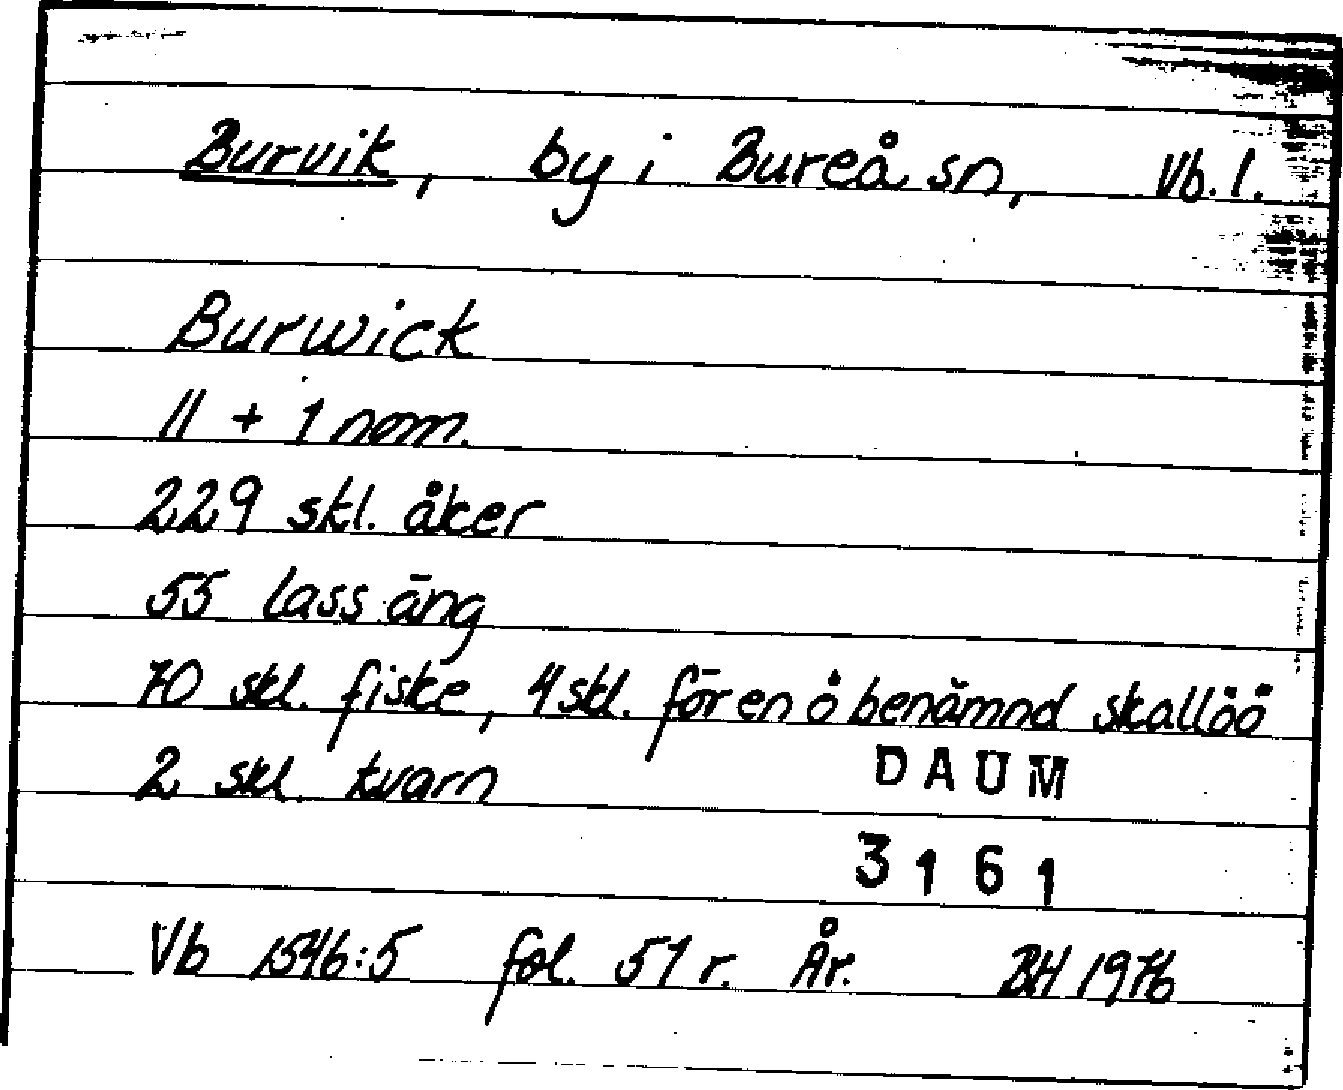 Burvik, by i Bureå sn, Vb. l.
Burwick
11 + 1 nom.
229 skl. åker
55 lass äng
70 skl. fiske, 4 skl. för en ö benämnd skallöö
2 skl. kvarn
DAUM
3161
Vb 1546:5 fol. 51 r. År. BH 1976